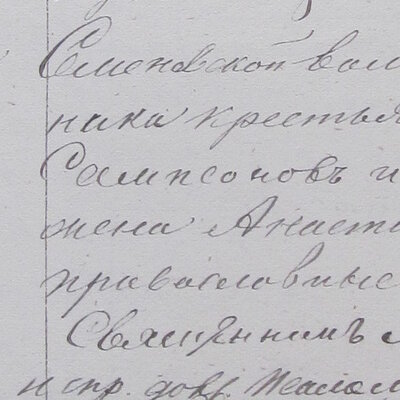 Сменовской вол
ника крестья
Сампсоновъ и
жена Анаст
православные
Священникъ
и спр. дов.